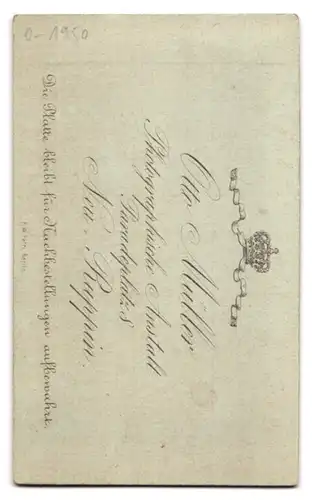 O-1950
Otto Müller
Photographische Anstalt
Paradeplatz 8
Neu-Ruppin.
Die Platte bleibt für Nachbestellungen aufbewahrt.